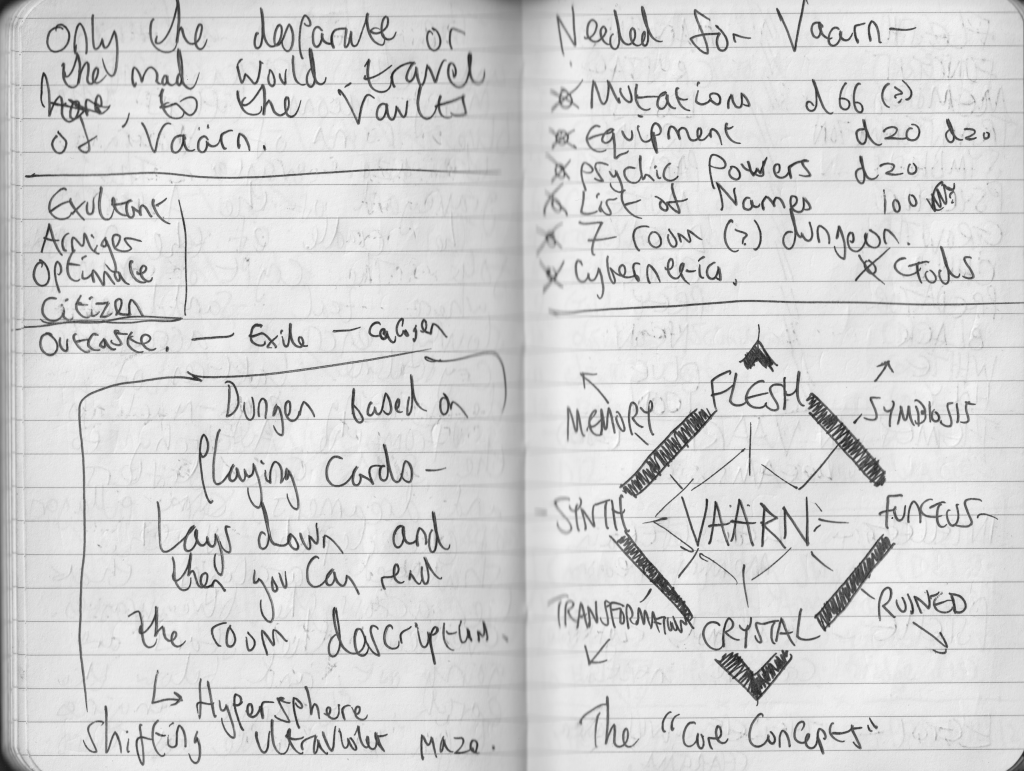 Only the desparate or
the mad would travel
here, to the Vaults
of Vaarn.
Exultant
Armiger
Optimate
Citizen
Outcaste. — Exile — Cacogen
Dungen based on
Playing Cards —
Lays down and
then you can read
the room description.
↳ Hypersphere
Shifting ultraviolet maze.
Needed for Vaarn —
Mutations d66 (?)
Equipment d20 d20
Psychic Powers d20
List of Names 100
7 room (?) dungeon.
Cybernetics. Gods
FLESH
MEMORY SYMBIOSIS
SYNTH VAARN FUNGUS
TRANSFORMATION CRYSTAL RUINED
The "Core Concepts"